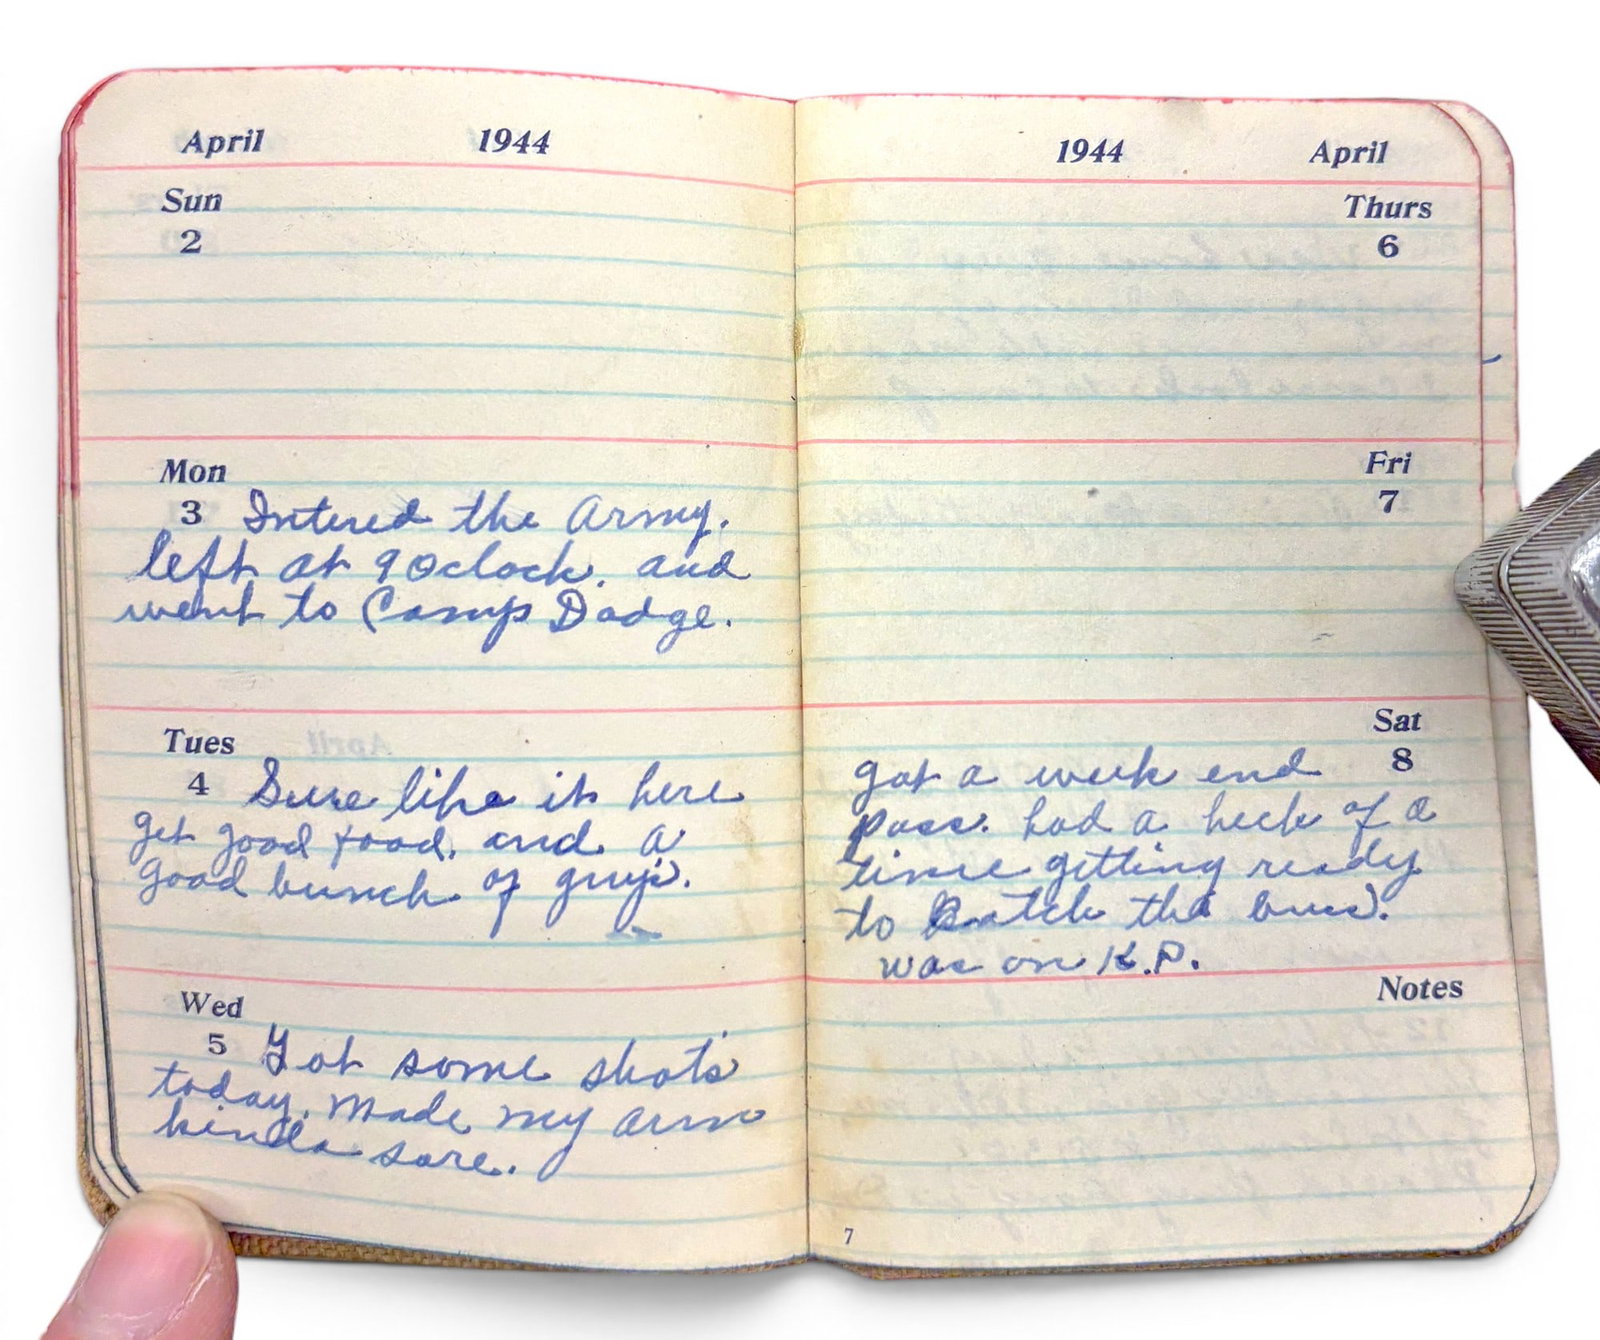 April 1944
Sun
2
Mon
3 Intered the Army.
left at 9 Oclock. and
went to Camp Dodge.
Tues
4 Sure like it here
get good food. and a
good bunch of guys.
Wed
5 Got some shots
today. made my arm
kinda sore.
1944 April
Thurs
6
Fri
7
Sat
8
got a week end
pass. had a heck of a
time getting ready
to Catch the bus.
was on K.P.
Notes
7